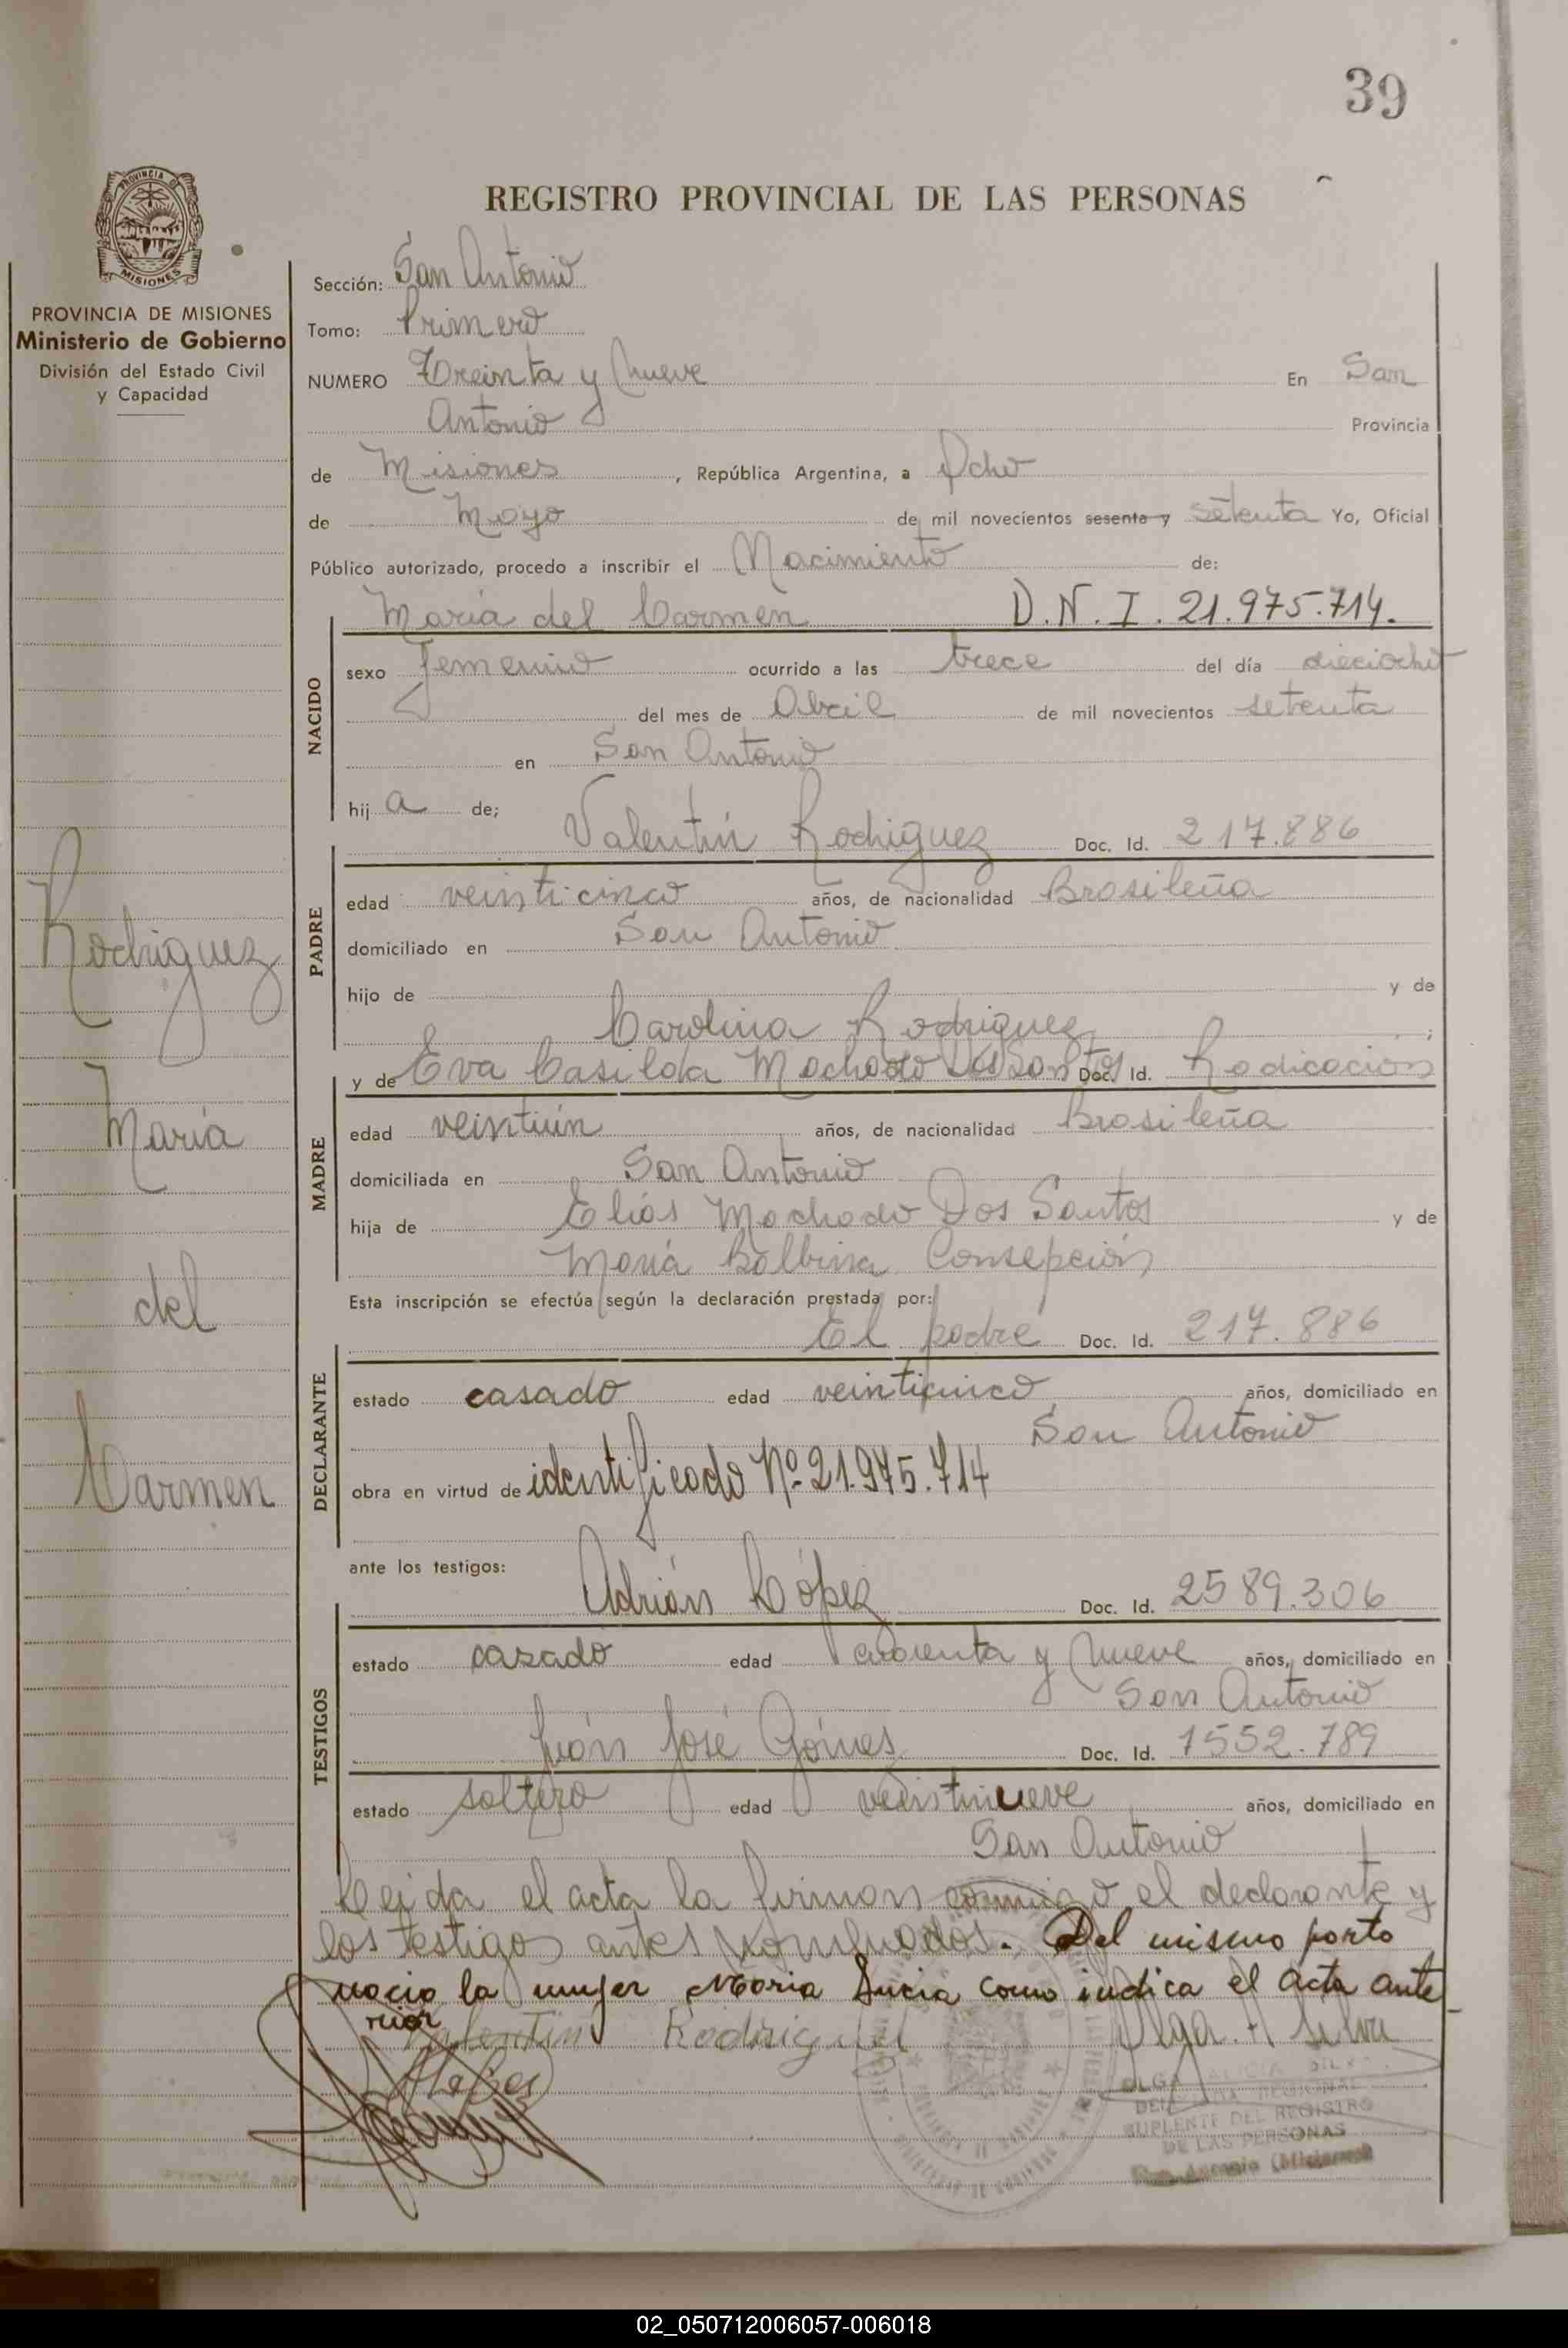 39
PROVINCIA DE MISIONES
PROVINCIA DE MISIONES
Ministerio de Gobierno
División del Estado Civil
y Capacidad
Rodriguez
María
del
Carmen
REGISTRO PROVINCIAL DE LAS PERSONAS
Sección: San Antonio
Tomo: Primero
NUMERO Treinta y Nueve En San
Antonio Provincia
de Misiones, República Argentina, a Ocho
de Mayo de mil novecientos sesenta y setenta Yo, Oficial
Público autorizado, procedo a inscribir el Nacimiento de:
María del Carmen D.N.I. 21.975.714.
NACIDO
sexo femenino ocurrido a las trece del día dieciocho
del mes de Abril de mil novecientos setenta
en San Antonio
hij a de;
Valentín Rodriguez Doc. Id. 217.886
PADRE
edad veinticinco años, de nacionalidad Brasileña
domiciliado en San Antonio
hijo de y de
Carolina Rodriguez;
y de Eva Casilda Machado Dos Santos Doc. Id. Radicación
MADRE
edad veintiún años, de nacionalidad Brasileña
domiciliada en San Antonio
hija de Elías Machado Dos Santos y de
María Balbina Consepción
Esta inscripción se efectúa según la declaración prestada por:
El padre Doc. Id. 217.886
DECLARANTE
estado casado edad veinticinco años, domiciliado en
San Antonio
obra en virtud de identificado Nº 21.975.714
ante los testigos:
Adrián López Doc. Id. 2589.306
TESTIGOS
estado casado edad cuarenta y Nueve años, domiciliado en
San Antonio
Juán José Gómes Doc. Id. 1552.789
estado soltero edad veintinueve años, domiciliado en
San Antonio
Leida el acta la firman conmigo el declarante y
los testigos antes nombrados. Del mismo parto
nacio la mujer Maria Lucia como indica el acta ante-
rior
Valentin Rodriguez Olga A Silva
OLGA
SUPLENTE DEL REGISTRO
DE LAS PERSONAS
San Antonio (Misiones)
02_050712006057-006018